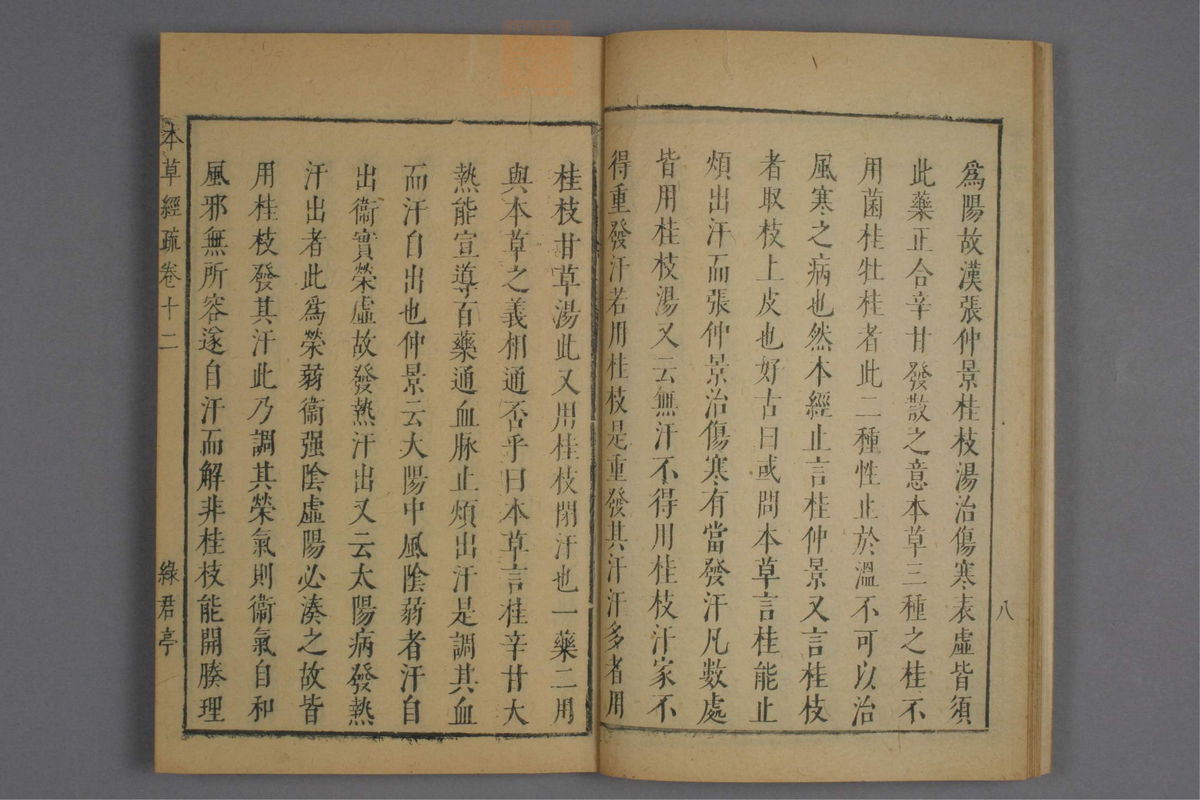 八
爲陽故漢張仲景桂枝湯治傷寒表虛皆須
此藥正合辛甘發散之意本草三種之桂不
用菌桂牡桂者此二種性止於溫不可以治
風寒之病也然本經止言桂仲景又言桂枝
者取枝上皮也好古曰或問本草言桂能止
煩出汗而張仲景治傷寒有當發汗凡數處
皆用桂枝湯又云無汗不得用桂枝汗家不
得重發汗若用桂枝是重發其汗汗多者用
桂枝甘草湯此又用桂枝閉汗也一藥二用
與本草之義相通否乎曰本草言桂辛甘大
熱能宣導百藥通血脉止煩出汗是調其血
而汗自出也仲景云大陽中風陰弱者汗自
出衞實榮虛故發熱汗出又云太陽病發熱
汗出者此爲榮弱衞强陰虛陽必湊之故皆
用桂枝發其汗此乃調其榮氣則衞氣自和
風邪無所容遂自汗而解非桂枝能開腠理
本草經疏卷十二
綠君亭